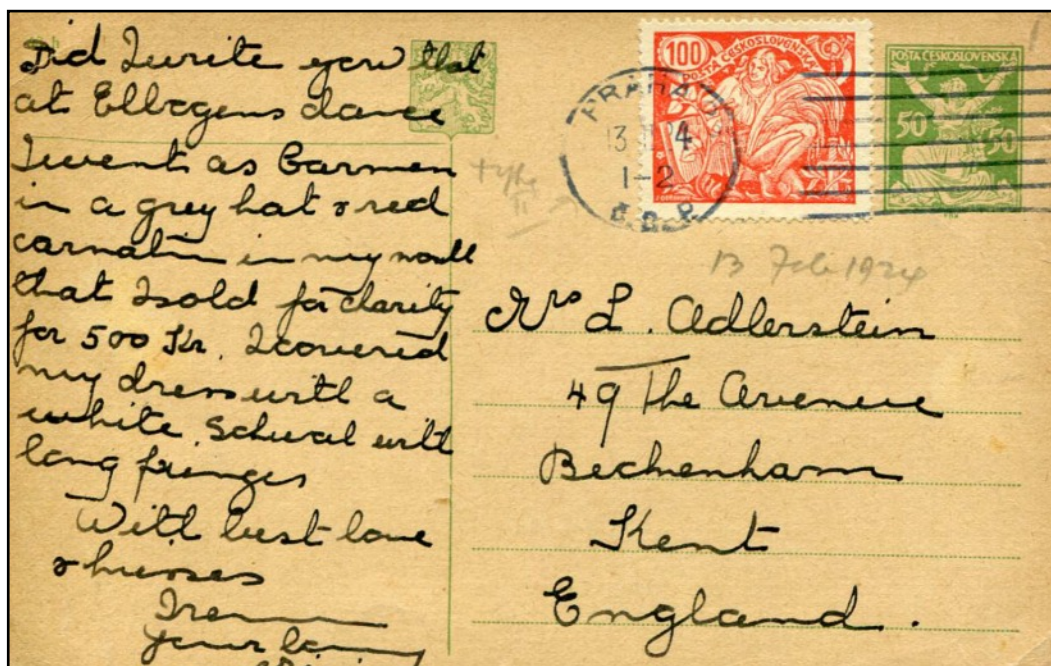 Did I write you that
at Elbogens dance
I went as Carmen
in a grey hat & red
carnation in my mouth
that I sold for charity
for 500 Kr. I covered
my dress with a
white Schwal with
long fringes
With best love
& kisses
your
100
POŠTA ČESKOSLOVENSKÁ
PRAHA
13 4
1-2
POŠTA ČESKOSLOVENSKÁ
50 50
type
II
13 Feb 1924
Mrs L. Adlerstein
49 The Avenue
Beckenham
Kent
England.